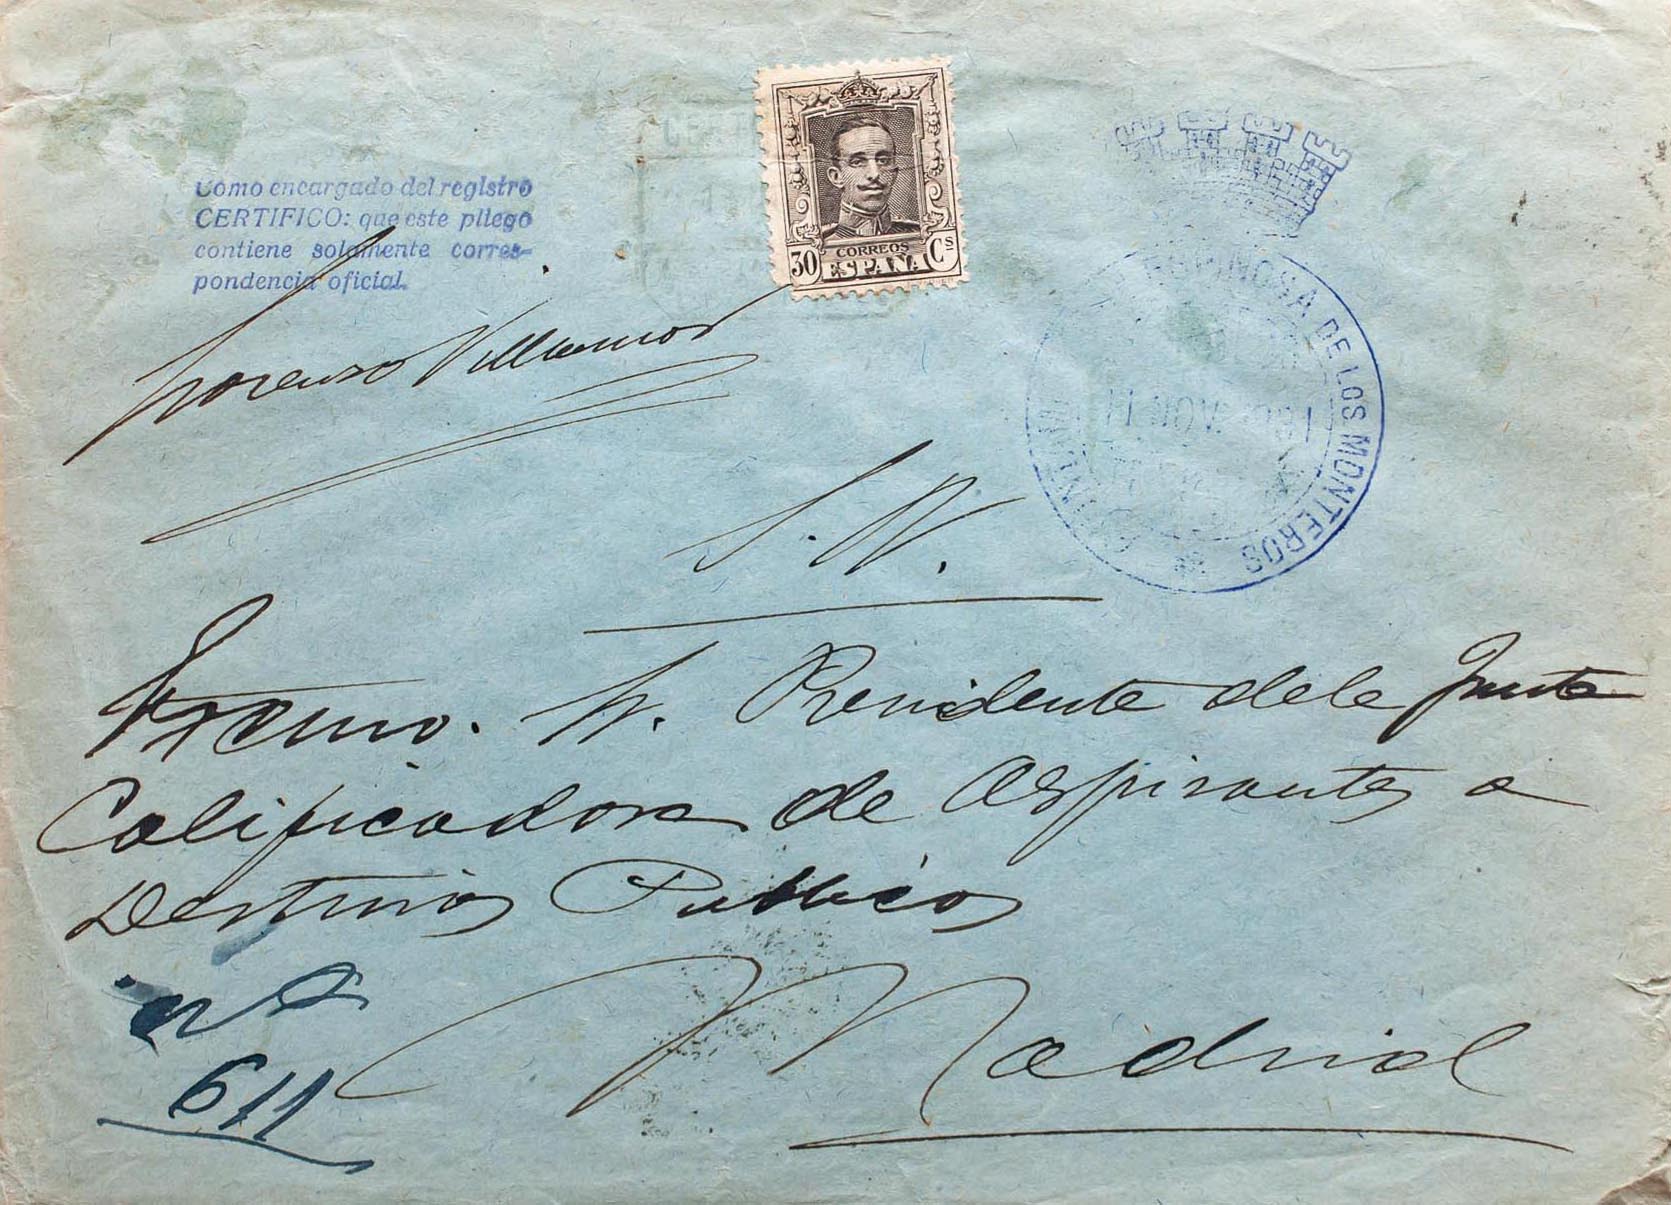 Como encargado del registro
CERTIFICO: que este pliego
contiene solamente corres-
pondencia oficial.
Lorenzo Villamor
CORREOS
30 ESPAÑA Cs
ESPINOSA DE LOS MONTEROS
11 NOV
S. N.
Excmo. Sr. Presidente dela Junta
Calificadora de Aspirantes a
Destinos Publicos
Madrid
nº
611